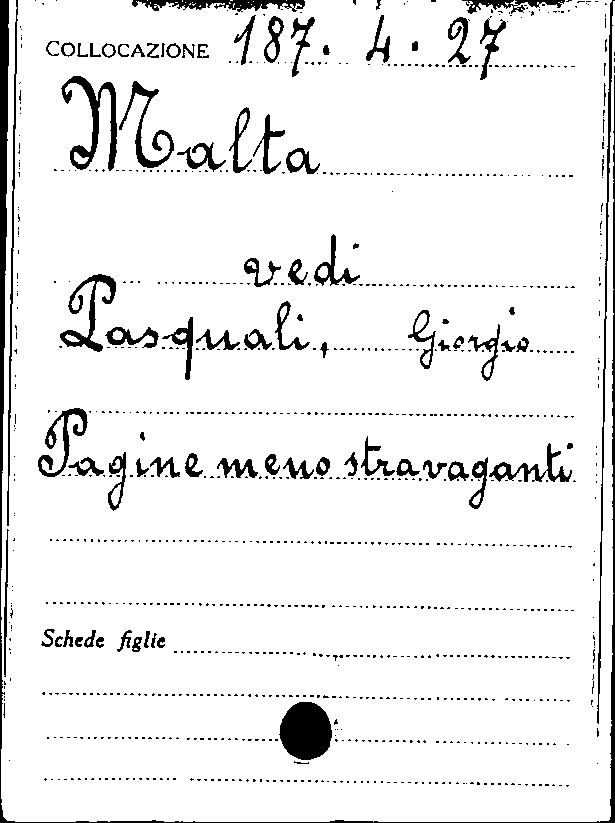 COLLOCAZIONE 187. 4. 27
Malta
vedi
Pasquali, Giorgio
Pagine meno stravaganti
Schede figlie